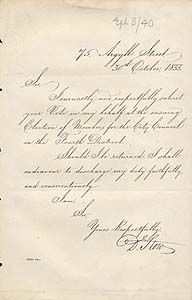 Eph B/40
75 Argyll Street
30th October, 1833.
Sir
I earnestly and respectfully solicit
your Vote in my behalf at the ensuing
Election of Members for the City Council
in the Fourth District.
Should I be returned, I shall
endeavour to discharge my duty faithfully
and conscientiously.
I am
Sir
Yours Respectfully
D. Stow